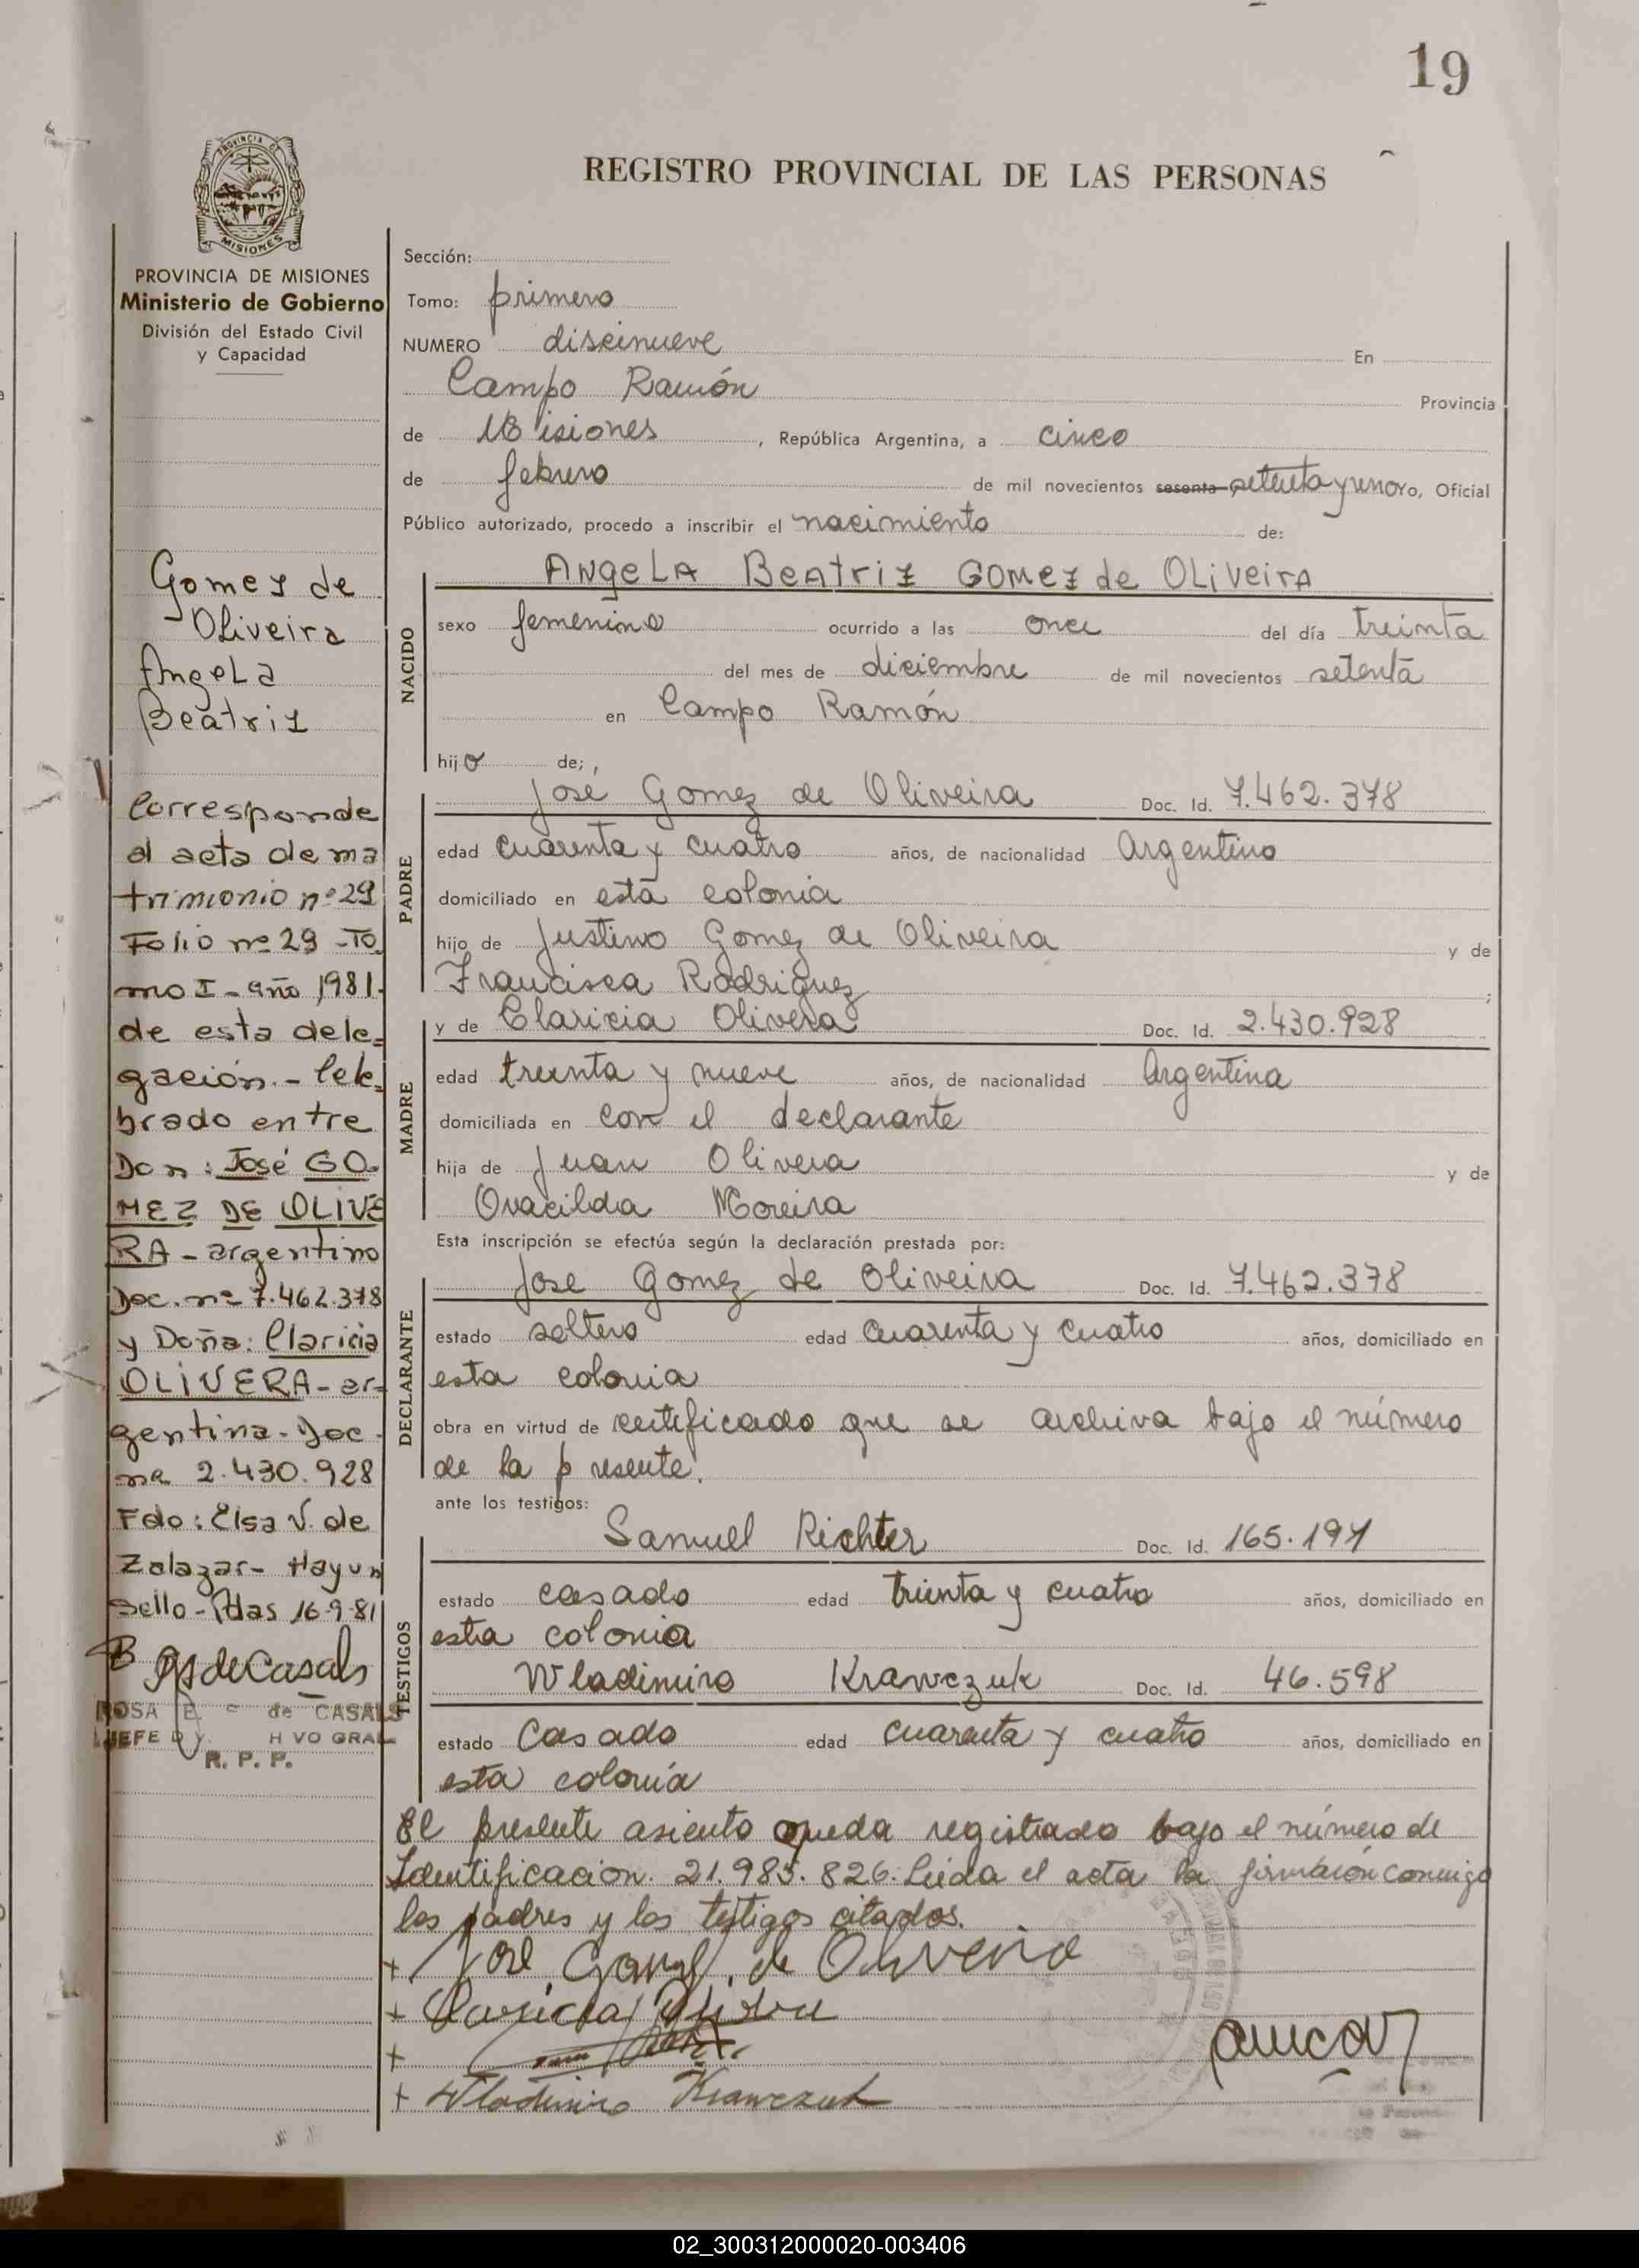 19
REGISTRO PROVINCIAL DE LAS PERSONAS
PROVINCIA DE
MISIONES
PROVINCIA DE MISIONES
Ministerio de Gobierno
División del Estado Civil
y Capacidad
Sección:
Tomo: primero
NUMERO diseinueve En
Campo Ramón Provincia
de Misiones, República Argentina, a cinco
de febrero de mil novecientos sesenta setenta y uno yo, Oficial
Público autorizado, procedo a inscribir el nacimiento de:
Gomez de
Oliveira
Angela
Beatriz
Corresponde
al acta de ma
trimonio nº 29
Folio nº 29 - To
mo I - año 1981.
de esta dele=
gación. - Cele=
brado entre
Don: José GO
MEZ DE OLIVE
RA - argentino
Doc. nº 7.462.378
y Doña: Claricia
OLIVERA - ar-
gentina - Doc.
nº 2.430.928
Fdo: Elsa V. de
Zalazar - Hay un
sello - Pdas 16-9-81
ROSA E. de CASALS
JEFE HVO GRAL
R. P. P.
NACIDO
AngeLA BeAtriz GOMez de OLiveirA
sexo femenino ocurrido a las once del día treinta
del mes de diciembre de mil novecientos setenta
en Campo Ramón
hijo de;
PADRE
José Gomez de Oliveira Doc. Id. 7.462.378
edad cuarenta y cuatro años, de nacionalidad Argentino
domiciliado en esta colonia
hijo de Justino Gomez de Oliveira y de
Francisca Rodriguez;
MADRE
y de Claricia Olivera Doc. Id. 2.430.928
edad treinta y nueve años, de nacionalidad Argentina
domiciliada en con el declarante
hija de Juan Olivera y de
Ovacilda Moreira
Esta inscripción se efectúa según la declaración prestada por:
DECLARANTE
Jose Gomez de Oliveira Doc. Id. 7.462.378
estado soltero edad cuarenta y cuatro años, domiciliado en
esta colonia
obra en virtud de certificado que se archiva bajo el número
de la presente.
ante los testigos:
TESTIGOS
Samuel Richter Doc. Id. 165.191
estado casado edad treinta y cuatro años, domiciliado en
esta colonia
Wladimiro Krawczuk Doc. Id. 46.598
estado Casado edad cuarenta y cuatro años, domiciliado en
esta colonia
El presente asiento queda registrado bajo el número de
Identificación. 21.985.826. Leida el acta la firmaron conmigo
los padres y los testigos citados.
+ José Gomez de Oliveira
+ Claricia Olivera
+
+ Wladimiro Krawczuk
02_300312000020-003406